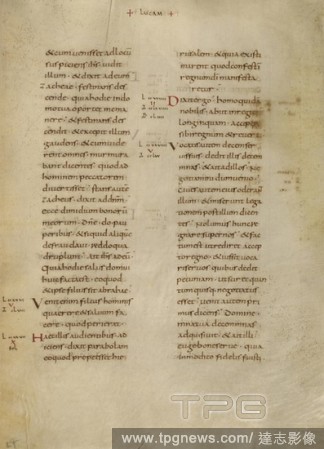 + LUCAM +
et cum venisset ad locu
suspiciens ihs vidit
illum et dixit ad eum
zachee festinans des
cende quia hodie in do
mo tua oportet me ma
nere et festinans des
cendit et excepit illum
gaudens et cum vide
rent omnes murmura
bant dicentes quod ad
hominem peccatorem
divertisset stans autem
zacheus dixit ad dnm
ecce dimidium bonoru
meorum dne do pau
peribus et si quid alique
defraudavi reddo qua
druplum ait ihs ad eu
quia hodie salus domui
huic facta est eo quod
et ipse filius sit abrahae
Venit enim filius hominis
quaerere et salvum fa
cere quod perierat
Haec illis audientibus ad
iciens dixit parabolam
eo quod prope esset hier
rusalem et quia existi
marent quod confestim
regnum di manifesta
retur
Dixit ergo homo quida
nobilis abiit in regione
longinquam accipere
sibi regnum et reverti
Vocatis autem decem ser
vis suis dedit illis decem
mnas et ait ad illos ne
gotiamini dum venio
Cives autem eius oderant
illum et miserunt lega
tionem post illum dicen
tes nolumus hunc re
gnare super nos et fac
tum est ut rediret accep
to regno et iussit voca
ri servos quibus dedit
pecuniam ut sciret quan
tum quisque negotiatus
esset venit autem pri
mus dicens domine
mna tua decem mnas
adquisivit et ait illi
euge bone serve quia
in modico fidelis fuisti
TPG
www.tpgnews.com/達志影像